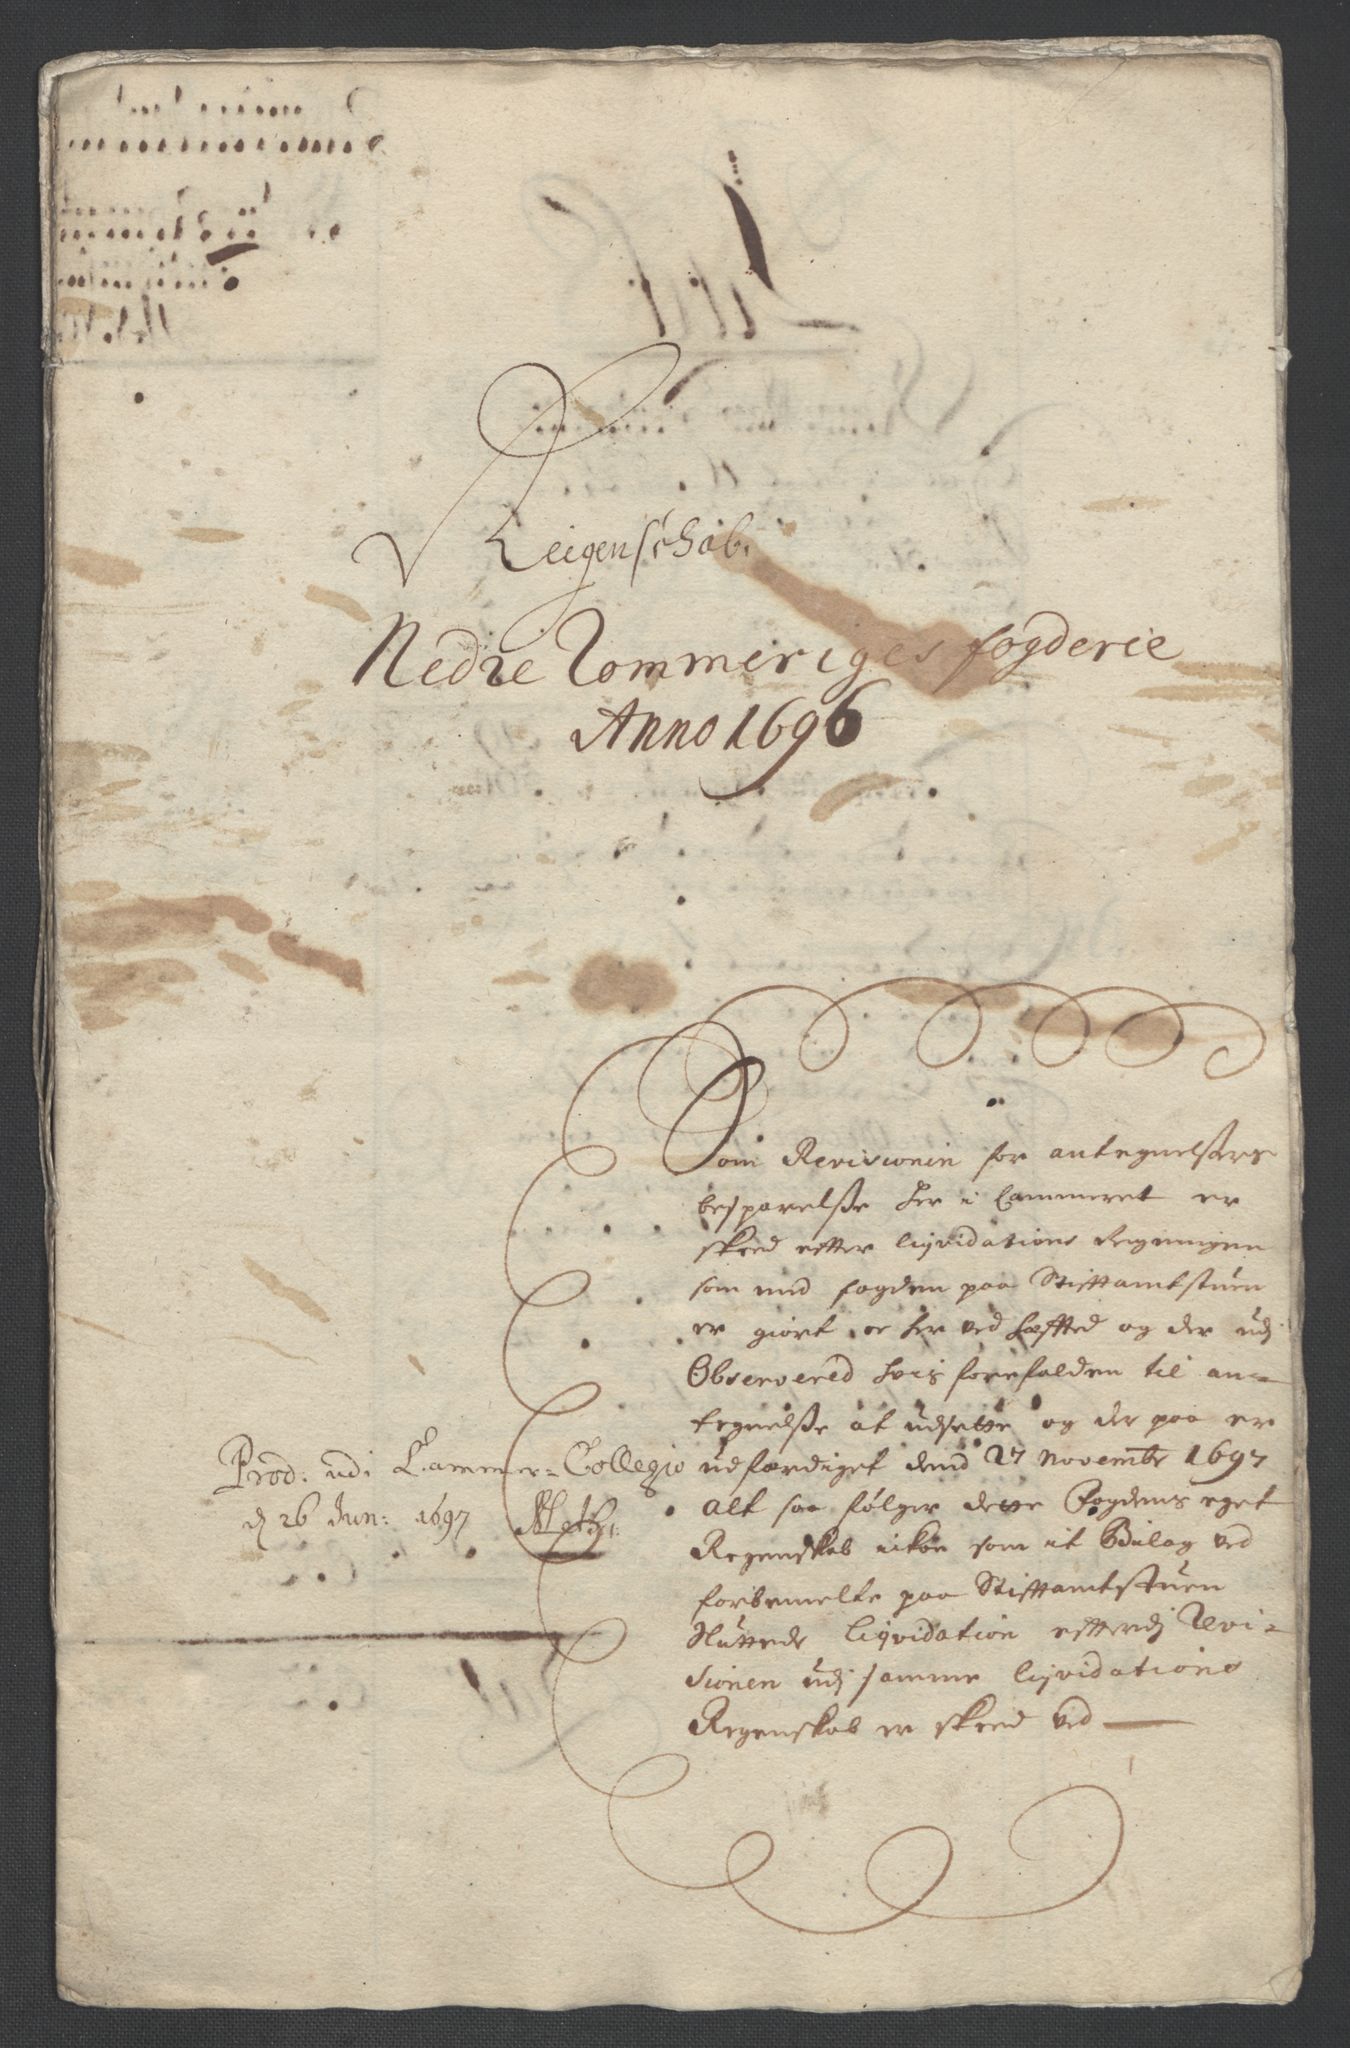 Reigenschab
Nedre Rommeriges fogderie
Anno 1696
Som Revisionen for antegnelsers
besparelsse her i Cammeret er
skeed effter liqvidations Reigningen
som med fogden paa Stifftamtstuen
er giort er her ved hæfftted og der udj
Observerid hvis forefalden til an-
tegnelsse at udsette og der paa er
udfærdiget dend 27 Novembr 1697
Alt saa følger dette Fogdens eget
Regenskab ickon som it Bielag ved
forbemelte paa Stifftamtstuen
Sluttede liqvidation effterdj Revi-
sionen udj samme liqvidations
Regenskab er skeed ved
Prod: udi Cammer-Collegio
d 26 Jun: 1697